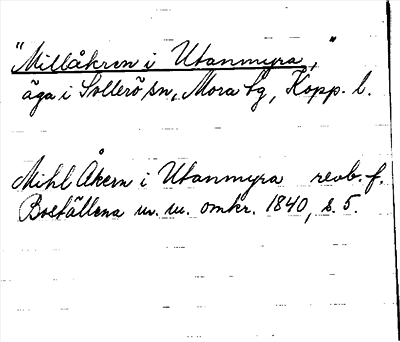 "Millåkren i Utanmyra,"
äga i Sollerö sn, Mora tg, Kopp. l.
Mihl Åkern i Utanmyra revb. f.
Boställena m. m. omkr. 1840, s. 5.